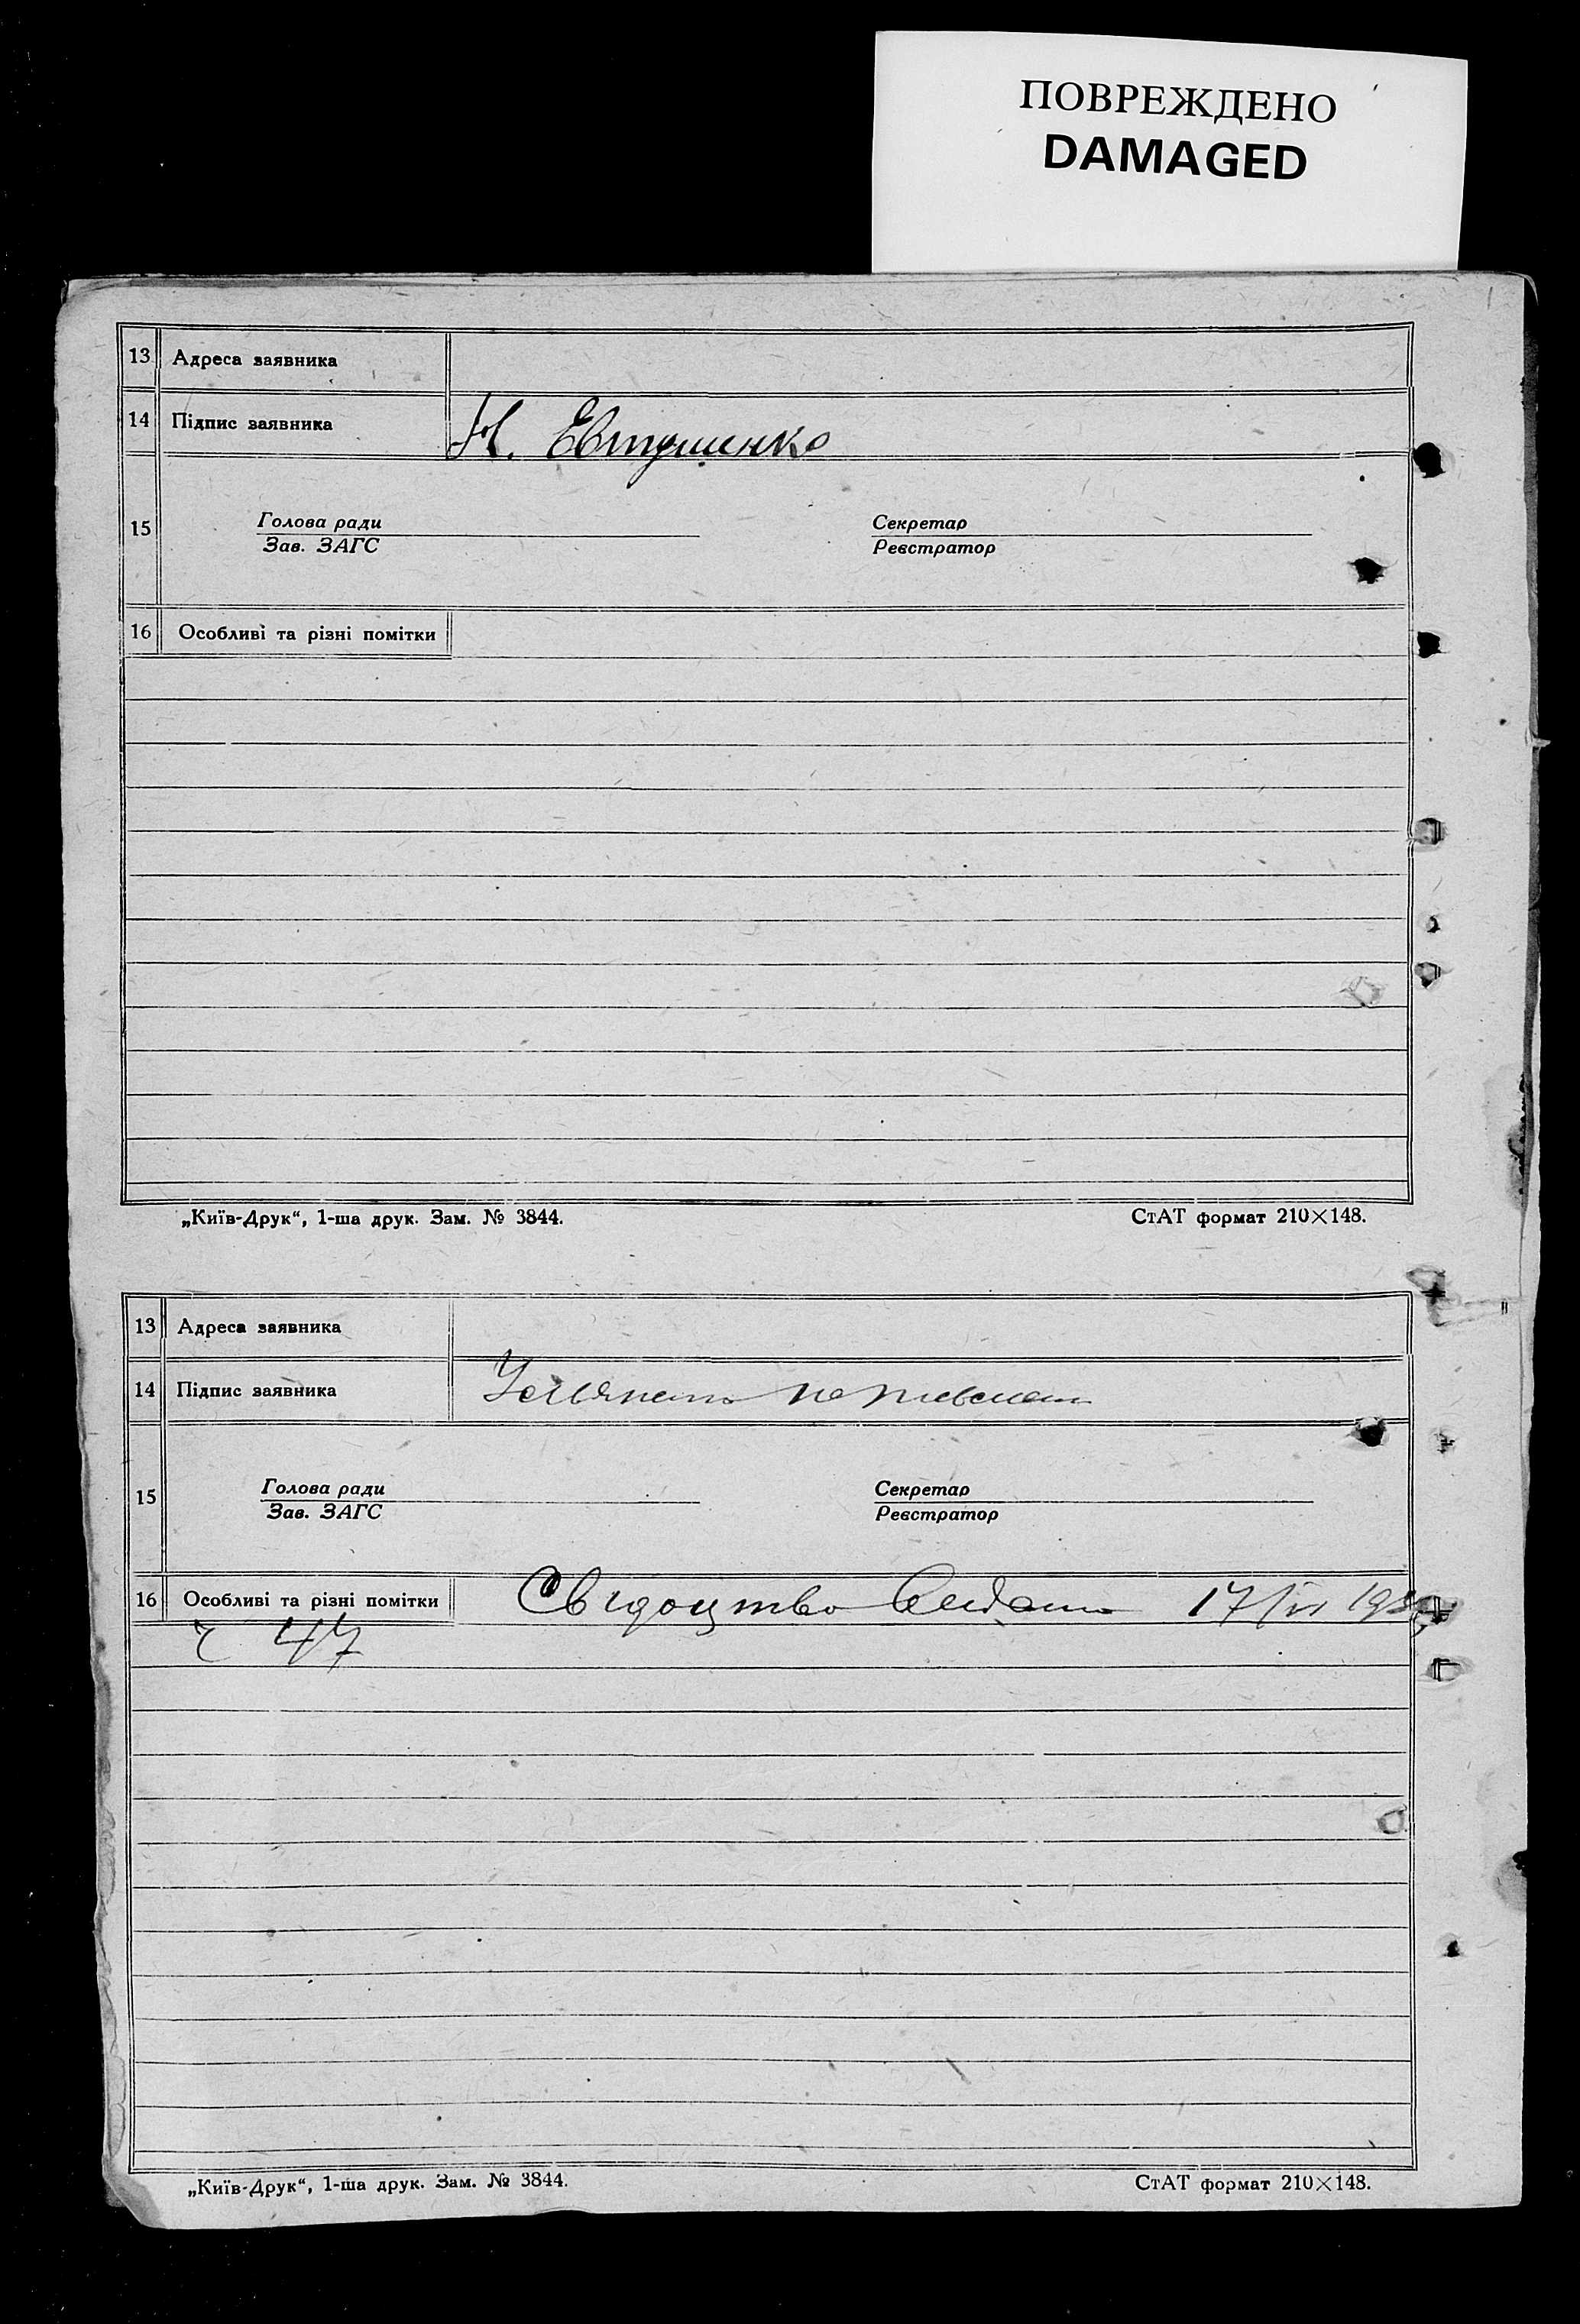 ПОВРЕЖДЕНО
DAMAGED
13 Адреса заявника
14 Підпис заявника Н. Евтушенко
15 Голова ради Секретар
Зав. ЗАГС Реєстратор
16 Особливі та різні помітки
„Київ-Друк“, 1-ша друк. Зам. № 3844. СтАТ формат 210×148.
13 Адреса заявника
14 Підпис заявника
15 Голова ради Секретар
Зав. ЗАГС Реєстратор
16 Особливі та різні помітки Свідоцтво 17/VI
47
„Київ-Друк“, 1-ша друк. Зам. № 3844. СтАТ формат 210×148.